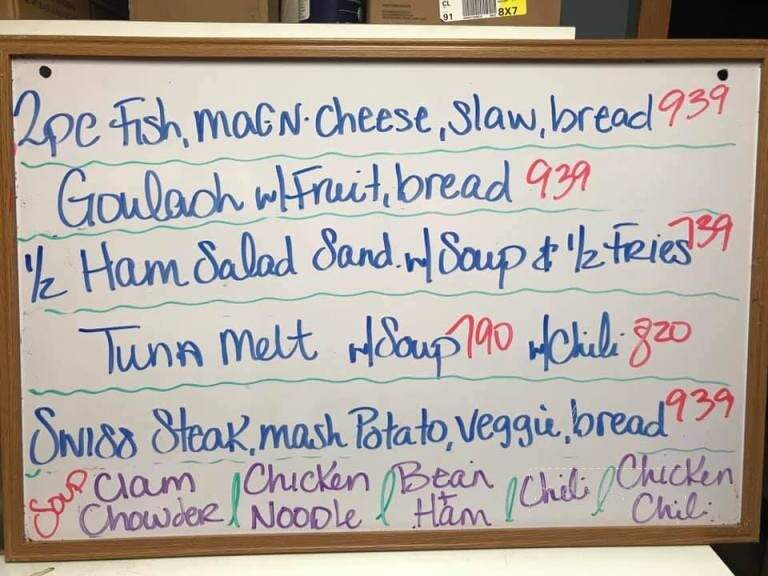 CL
91
8X7
2pc Fish, mac N. Cheese, Slaw, bread 939
Goulash w/Fruit, bread 939
1/2 Ham Salad Sand. w/Soup & 1/2 Fries 739
Tuna Melt w/Soup 790 w/Chili 820
Swiss Steak, mash Potato, Veggie, bread 939
Soup Clam Chowder / Chicken Noodle / Bean + Ham / Chili / Chicken Chili